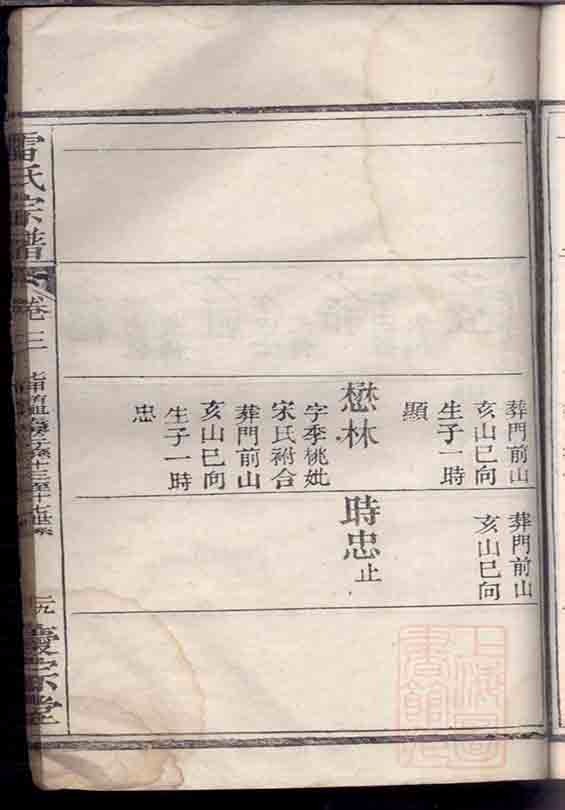 葬門前山
亥山巳向
生子一時
顯
懋林
字季桃妣
宋氏祔合
葬門前山
亥山巳向
生子一時
忠
葬門前山
亥山巳向
時忠止
雷氏宗譜
卷三
慶宗堂
上海圖書館藏